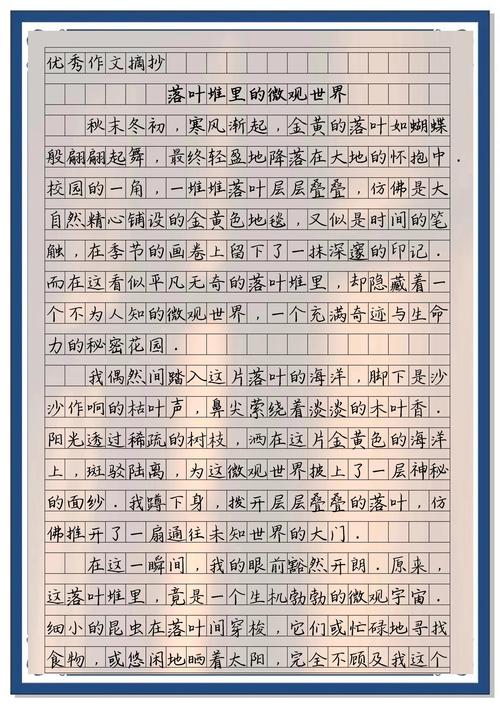 优秀作文摘抄
落叶堆里的微观世界
秋末冬初，寒风渐起，金黄的落叶如蝴蝶
般翩翩起舞，最终轻盈地降落在大地的怀抱中．
校园的一角，一堆堆落叶层层叠叠，仿佛是大
自然精心铺设的金黄色地毯，又似是时间的笔
触，在季节的画卷上留下了一抹深邃的印记．
而在这看似平凡无奇的落叶堆里，却隐藏着一
个不为人知的微观世界，一个充满奇迹与生命
力的秘密花园．
我偶然间踏入这片落叶的海洋，脚下是沙
沙作响的枯叶声，鼻尖萦绕着淡淡的木叶香．
阳光透过稀疏的树枝，洒在这片金黄色的海洋
上，斑驳陆离，为这微观世界披上了一层神秘
的面纱．我蹲下身，拨开层层叠叠的落叶，仿
佛推开了一扇通往未知世界的大门．
在这一瞬间，我的眼前豁然开朗．原来，
这落叶堆里，竟是一个生机勃勃的微观宇宙．
细小的昆虫在落叶间穿梭，它们或忙碌地寻找
食物，或悠闲地晒着太阳，完全不顾及我这个